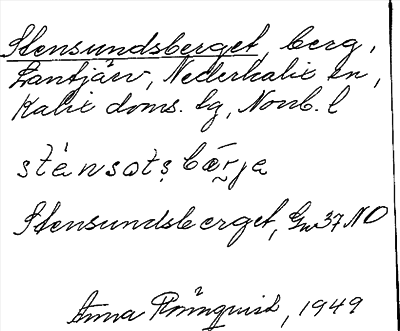 Stensundsberget, berg,
Lantjärv, Nederkalix sn,
Kalix doms. lg, Norrb. l
stènsotsbærja
Stensundsberget, Gw 37 NO
Anna Rönnquist, 1949